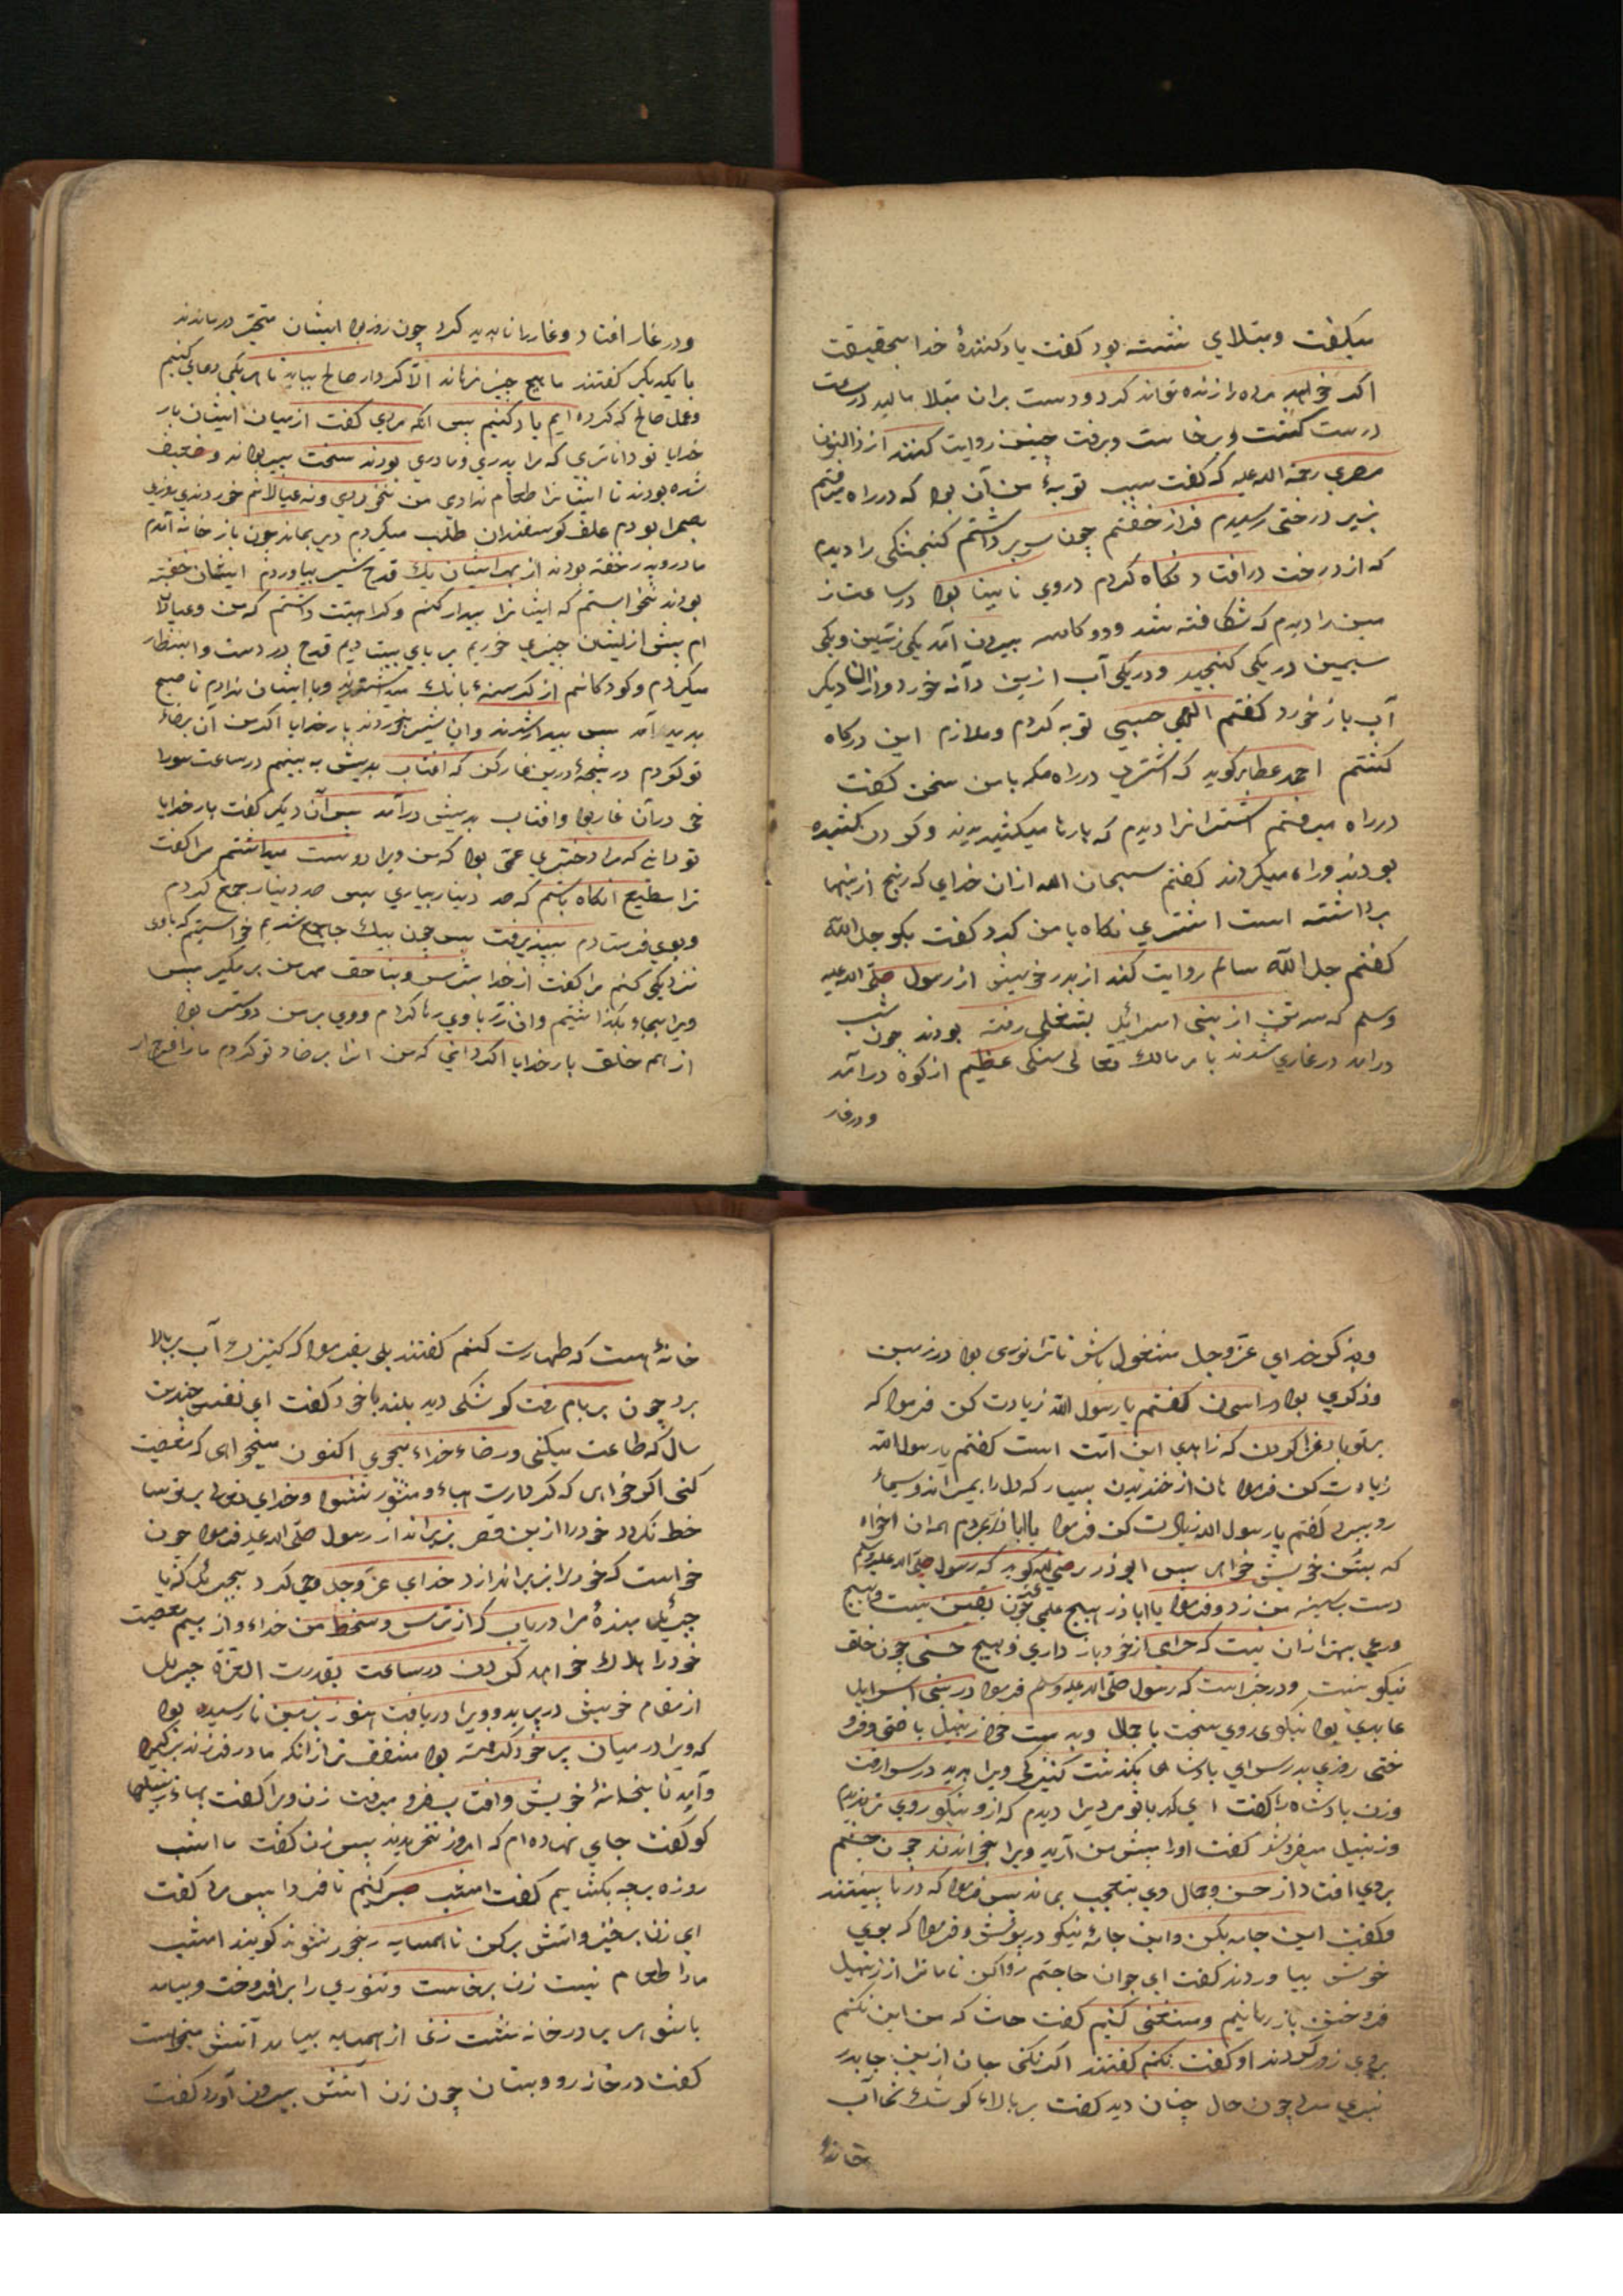 میکفت و مبتلای نشسته بود کفت یاد کنندهٔ خدا بحقیقت
اکر خواهد مرده را زنده تواند کرد و دست بران مبتلا مالید در ساعت
درست کشت و برخاست و برفت چنین روایت کنند از ذوالنون
مصری رحمة الله علیه که کفت سبب توبهٔ من آن بود که در راه میرفتم
بزیر درختی رسیدم فراز خفتم چون سر برداشتم کنجشکی را دیدم
که از درخت در افتاد نکاه کردم در وی نابینا بود در ساعت ز
مین را دیدم که شکافته شد و دو کاسه بیرون آمد یکی زرین و یکی
سیمین در یکی کنجید و در یکی آب ازین دانه خورد و از ان دیکر
آب باز خورد کفتم الهی حسبی توبه کردم و ملازم این درکاه
کشتم احمد عطا برکوید که اشتری در راه مکه با من سخن کفت
در راه میرفتم اشتران را دیدم که بارها میکشیدند و کردن کشیده
بودند و راه میکردند کفتم سبحان الله ازان خدای که رنج ازینها
برداشته است اشتری نکاه با من کرد و کفت بکو جل الله
کفتم جل الله سالم روایت کند از پدر خویش از رسول صلی الله علیه
وسلم که سه تن از بنی اسرائیل بشغلی رفته بودند چون شب
درامد در غاری شدند با مر مالک تعالی سنکی عظیم از کوه در آمد
و در غار
و در غار افتاد و غار را ناپدید کرد چون روز بود ایشان متحیر درماندند
با یکدیکر کفتند ما هیچ چیز نرهاند الا کردار صالح بیایید تا هر یکی دعای کنیم
و عمل صالح که کرده ایم یاد کنیم پس انکه مردی کفت از میان ایشان بار
خدایا تو داناتری که مرا پدری و مادری بودند سخت پیر بودند و ضعیف
شده بودند تا ایشانرا طعام ندادی من نخوردی و نه عیالانم خوردندی روزی
بصحرا بودم علف کوسفندان طلب میکردم دیر بماند چون باز خانه آمدم
مادر و پدر خفته بودند از بهر ایشان یک قدح شیر بیاوردم ایشان خفته
بودند نخواستم که ایشانرا بیدار کنم و کراهیت داشتم که من و عیالان
ام پیش از ایشان چیزی خوریم بر پای بیستادم قدح در دست و انتظار
میکردم و کودکانم از کرسنهٔ بانک میداشتند و با ایشان ندادم تا صبح
بدید آمد پس بیدار شدند و ان شیر بخوردند بار خدایا اکر من آن برضاء
تو کردم دریچهٔ درین غار کن که افتاب بدیش به بینم در ساعت سورا
خی دران غار بود و افتاب بدیش درآمد پس آن دیکر کفت بار خدایا
تو دانی که مرا دختری عمی بود که من ویرا دوست میداشتم مرا کفت
ترا مطیع انکاه باشم که صد دینار بیاری پس صد دینار جمع کردم
و بوی فرستادم بپذیرفت پس چون بیک جای جمع شدیم خواستم که با وی
نزدیکی کنم مرا کفت از خدا بترس و بناحق مهر من بر مکیر پس
ویرا بیجا و بکذاشتم وان زر با وی رها کردم و وی بر من دوستر بود
از همه خلق بار خدایا اکر دانی که من انرا برضاء تو کردم ما را فرج ار
وبذکر خدای عز وجل مشغول باش تا ترا نوری بود در زمین
و ذکری بود در اسمان کفتم یا رسول الله زیادت کن فرمود که
بر تو باد غزا کردن که زاهدی این امت است کفتم یا رسول الله
زیادت کن فرمود هان از خندیدن بسیار که دل را بمیراند و سیماءِ
رو ببرد کفتم یا رسول الله زیادت کن فرمود یا ابا ذر مردم همه ان خواه
که بتن خویش خواهی پس ابوذر رضی الله کوید که رسول صلی الله علیه وسلم
دست بر سینه من زد و فرمود یا ابا ذر هیچ علمی چون یقین نیست و هیچ
ورعی بهتر ازان نیست که حرای از خود باز داری و هیچ حسنی چون خلق
نیکو نیست و در خبر است که رسول صلی الله علیه وسلم فرمود در بنی اسرایل
عابدی بود نیکوی روی سخت با جمال و بدست خود زنبیل بافتی و فرو
ختی روزی بدر سرای بادشاهی بکذشت کنیزکی ویرا بدید در سرا رفت
و زن بادشاه را کفت ای کدبانو مردیرا دیدم که ازو نیکو روی تر ندیدم
و زنبیل میفروشد کفت اورا پیش من آرید ویرا بخواندند چون چشم
بر وی افتاد از حسن و جمال وی بتعجب بماند پس فرمود که درها ببستند
و کفت این جامه بکن و این جامهٔ نیکو در پوش و فرمود که بوی
خوش بیاوردند کفت ای جوان حاجتم روا کن تا ما ترا از زنبیل
فروختن باز رهانیم و مستغنی کنیم کفت حاشا که من این نکنم
بر وی زور کردند او کفت نکنم کفتند اکر نکنی جان ازینجا بدر
نبری مرد چون حال چنان دید کفت بر بالاء کوشک شما آب
خانهٔ
خانهٔ هست که طهارت کنم کفتند بلی بفرمود که کنیزک آب بر بالا
برد چون بر بام رفت کوشکی دید بلند با خود کفت ای نفس چندین
سال که طاعت میکنی و رضاء خداء میجوی اکنون میخواهی که معصیت
کنی اکر خواهی که کردارت هباء و منثور نشود و خدای تعالی بر تو سا
خط نکردد خود را ازین قصر بزیر انداز رسول صلی الله علیه فرمود چون
خواست که خود را بزیر اندازد خدای عز وجل وحی کرد بجبرئیل که یا
جبرئیل بندهٔ مرا دریاب که از ترس و سخط من خداء و از بیم معصیت
خود را هلاک خواهد کردن در ساعت بقدرت العزة جبریل
از مقام خویش در پرید و ویرا دریافت هنوز بزمین نا رسیده بود
که ویرا در میان پر خود کرفته بود مشفق تر از انکه مادر فرزند برکیرد
و آمد تا بخانهٔ خویش وافتاب فرو میرفت زن ویرا کفت بهاء زنبیلها
کو کفت جای نهاده ام که امروز نخریدند پس زن کفت ما امشب
روزه بر چه بکشاییم کفت امشب صبر کنیم تا فردا پس مرد کفت
ای زن برخیز و اتش بر کن تا همسایه رنجور نشوند کویند امشب
مارا طعام نیست زن برخاست و تنوری را بر افروخت و بیامد
با شوهر بر در خانه نشست زنی از همسایه بیامد آتش میخواست
کفت در خانه رو و بستان چون زن اتش بیرون آورد کفت